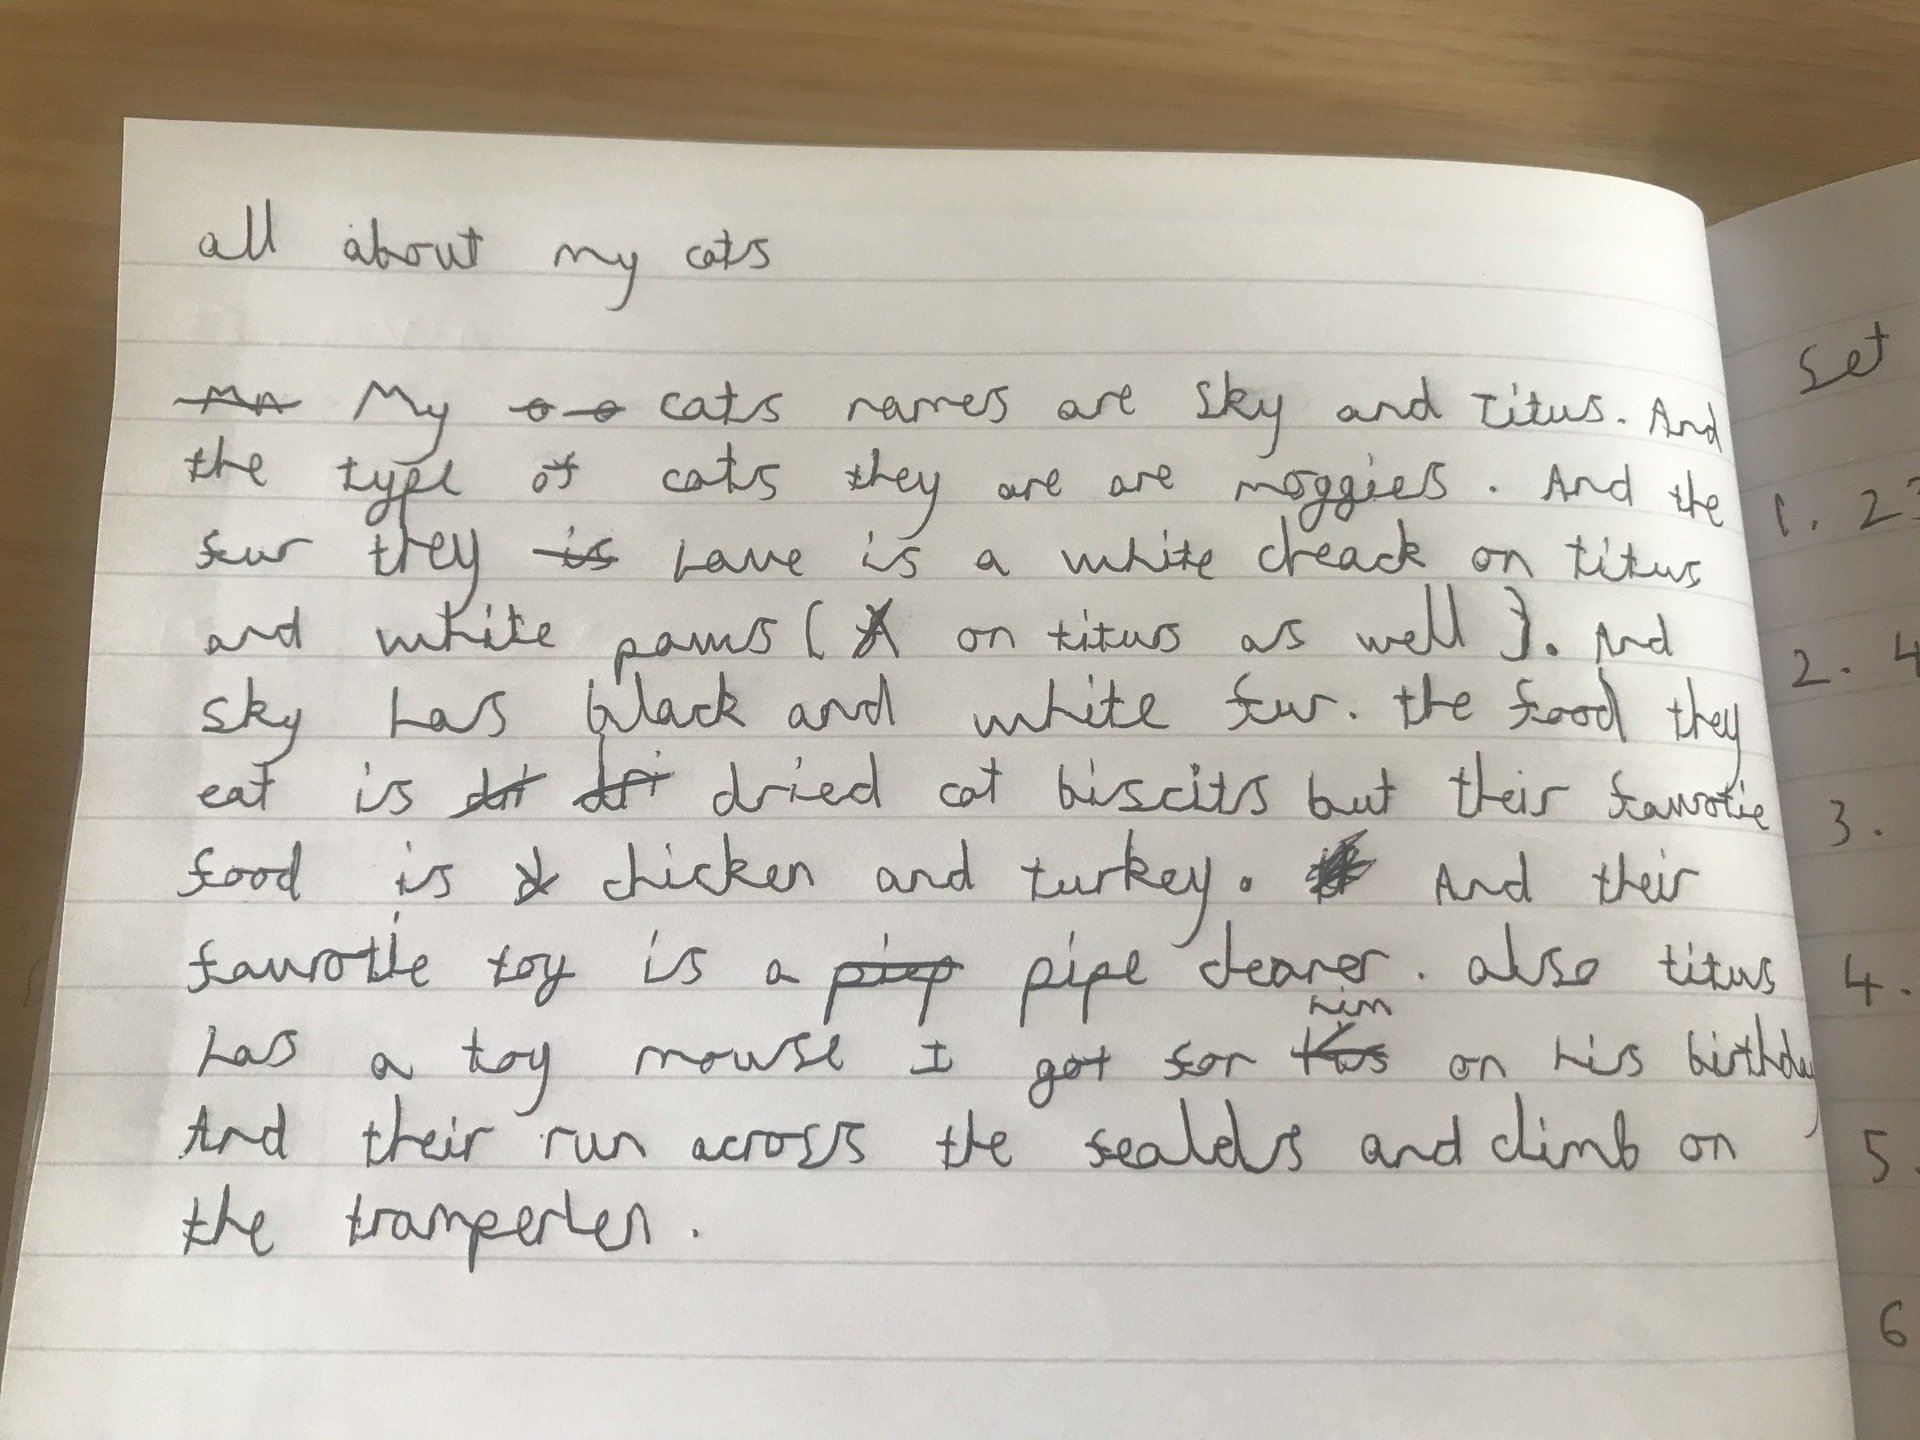 all about my cats
My cats names are Sky and Titus. And
the type of cats they are are moggies. And the
fur they have is a white cheack on titus
and white paws ( on titus as well ). And
sky has black and white fur. the food they
eat is dried cat biscits but their favrotie
food is chicken and turkey. And their
favrotie toy is a pipe cleaner. also titus
has a toy mouse I got for him on his birthday
And their run across the fealds and climb on
the tramperlen.
Set
1. 23
2. 4
3.
4.
5.
6